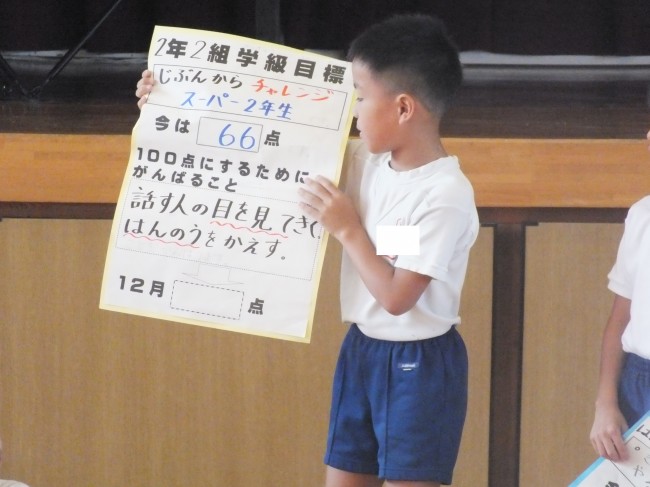 2年2組学級目標
じぶんから チャレンジ
スーパー2年生
今は 66 点
100点にするために
がんばること
話す人の目を見てきく。
はんのうをかえす。
12月 点